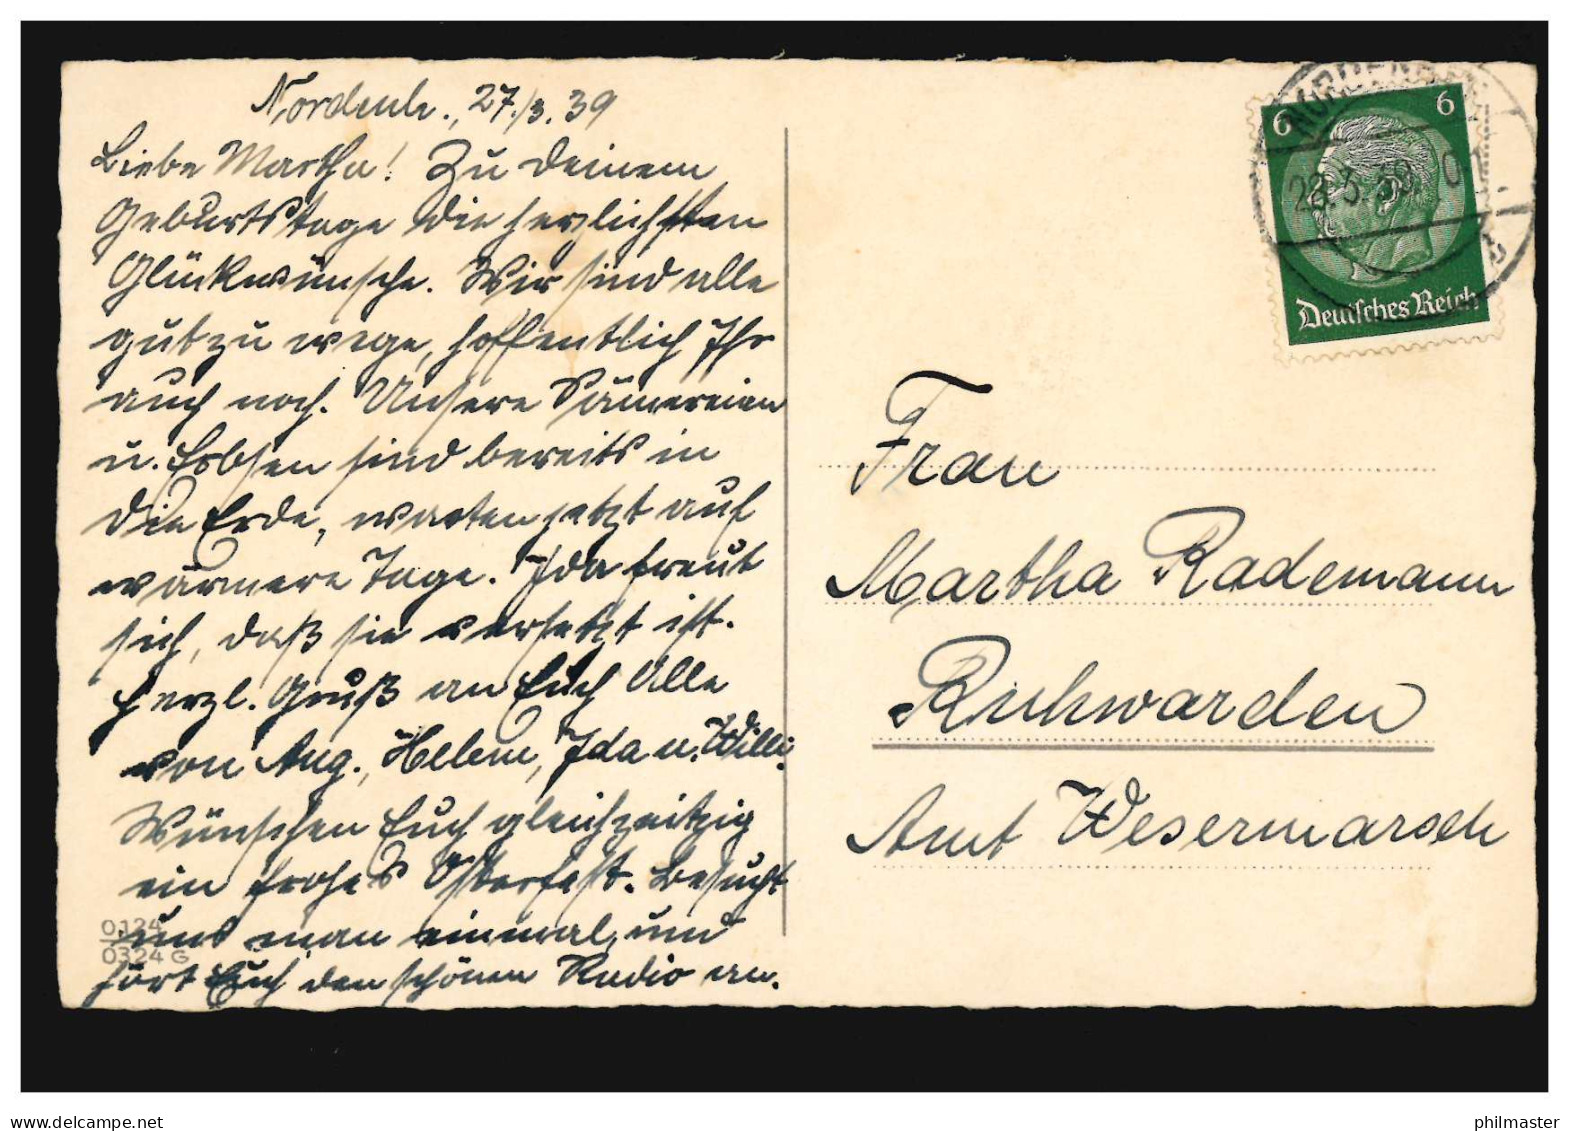 Nordenh., 27./3.39
Liebe Martha! Zu Deinem
Geburtstage die herzlichsten
Glückwünsche. Wir sind alle
gut zu wege, hoffentlich Ihr
auch noch. Unsere Sämereien
u. Erbsen sind bereits in
die Erde, warten jetzt auf
wärmere Tage. Ida freut
sich, daß sie versetzt ist.
Herzl. Gruß an Euch Alle
von Aug., Helene, Ida u. Willi.
Wünschen Euch gleichzeitig
ein frohes Osterfest. Besucht
uns man einmal, und
hört Euch den schönen Radio an.
0124
0324 G
6 6
28.3.39
Deutsches Reich
Frau
Martha Rademann
Ruhwarden
Amt Wesermarsch
www.delcampe.net
philmaster